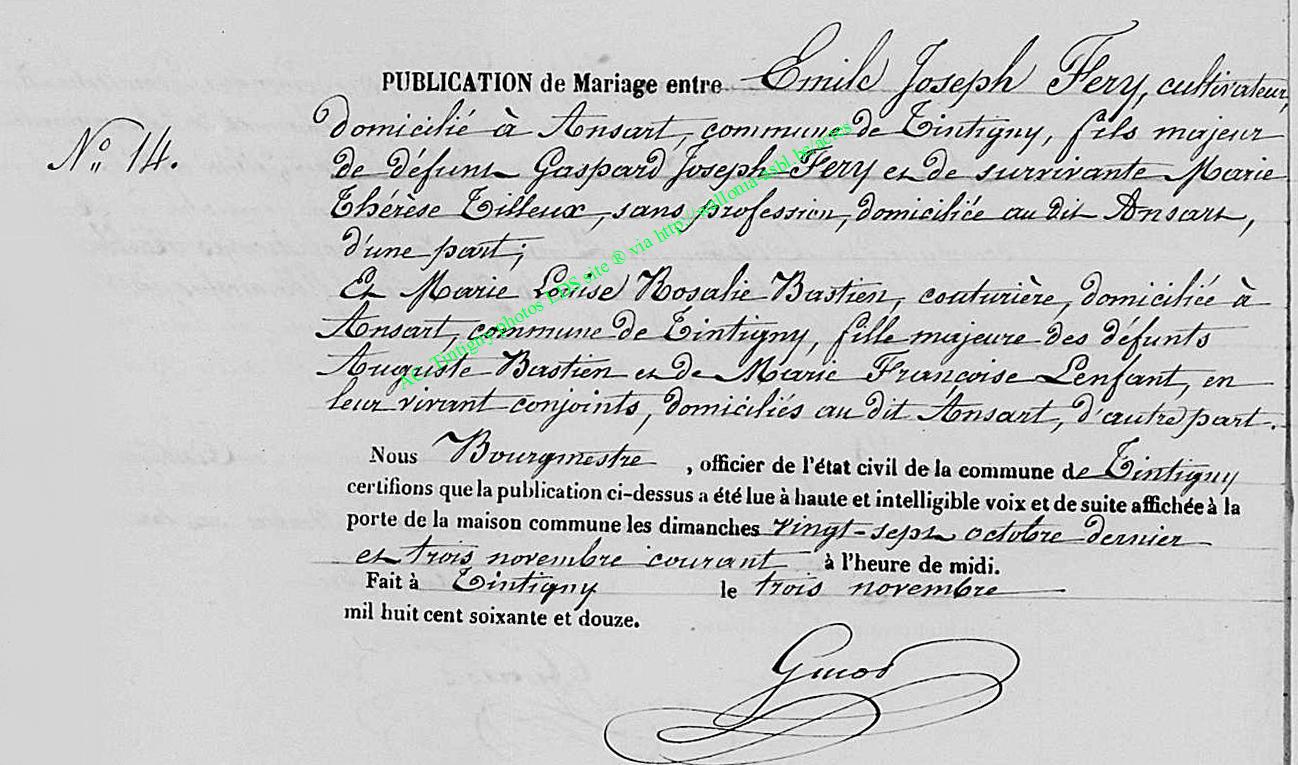 PUBLICATION de Mariage entre Emile Joseph Fery, cultivateur,
N° 14.
domicilié à Ansart, commune de Tintigny, fils majeur
de défunt Gaspard Joseph Fery et de survivante Marie
Thérèse Tilleux, sans profession, domiciliée au dit Ansart,
d'une part;
Et Marie Louise Rosalie Bastien, couturière, domiciliée à
Ansart, commune de Tintigny, fille majeure des défunts
Auguste Bastien et de Marie Françoise Lenfant, en
leur vivant conjoints, domiciliés au dit Ansart, d'autre part.
Nous Bourgmestre, officier de l'état civil de la commune de Tintigny
certifions que la publication ci-dessus a été lue à haute et intelligible voix et de suite affichée à la
porte de la maison commune les dimanches vingt-sept octobre dernier
et trois novembre courant à l'heure de midi.
Fait à Tintigny le trois novembre
mil huit cent soixante et douze.
AC. Tintigny photos LDS site ® via http://wallonia-asbl.be/actes